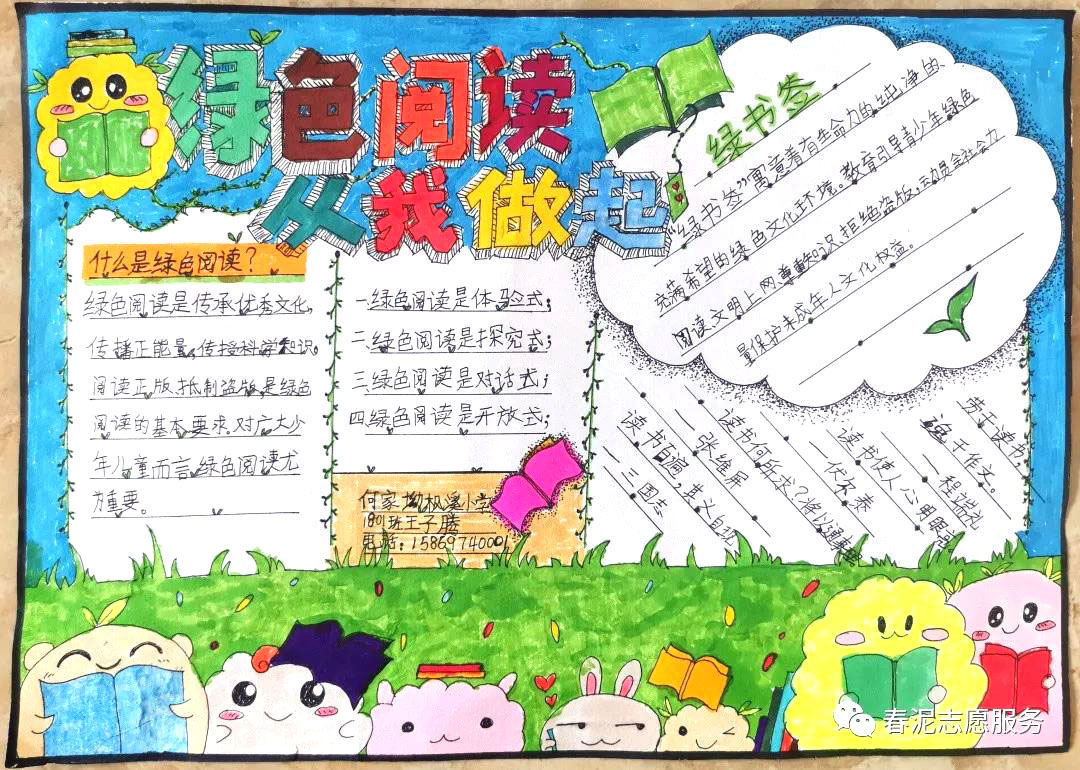 绿色阅读
从我做起
什么是绿色阅读？
绿色阅读是传承优秀文化，
传播正能量，传授科学知识。
阅读正版，抵制盗版，是绿色
阅读的基本要求。对广大少
年儿童而言，绿色阅读尤
为重要。
一绿色阅读是体验式；
二绿色阅读是探究式；
三绿色阅读是对话式；
四绿色阅读是开放式；
何家坳枫溪小学
180班王子腾
电话：15869740001
绿书签
“绿书签”寓意着有生命力的纯净的、
充满希望的绿色文化环境。教育引导青少年绿色
阅读、文明上网、尊重知识、拒绝盗版，动员全社会力
量保护未成年人文化权益。
读书百遍，其义自现
——三国志
读书何所求？将以通事理
——张维屏
读书使人心明眼亮
——伏尔泰
劳于读书，
逸于作文。
——程端礼
春泥志愿服务